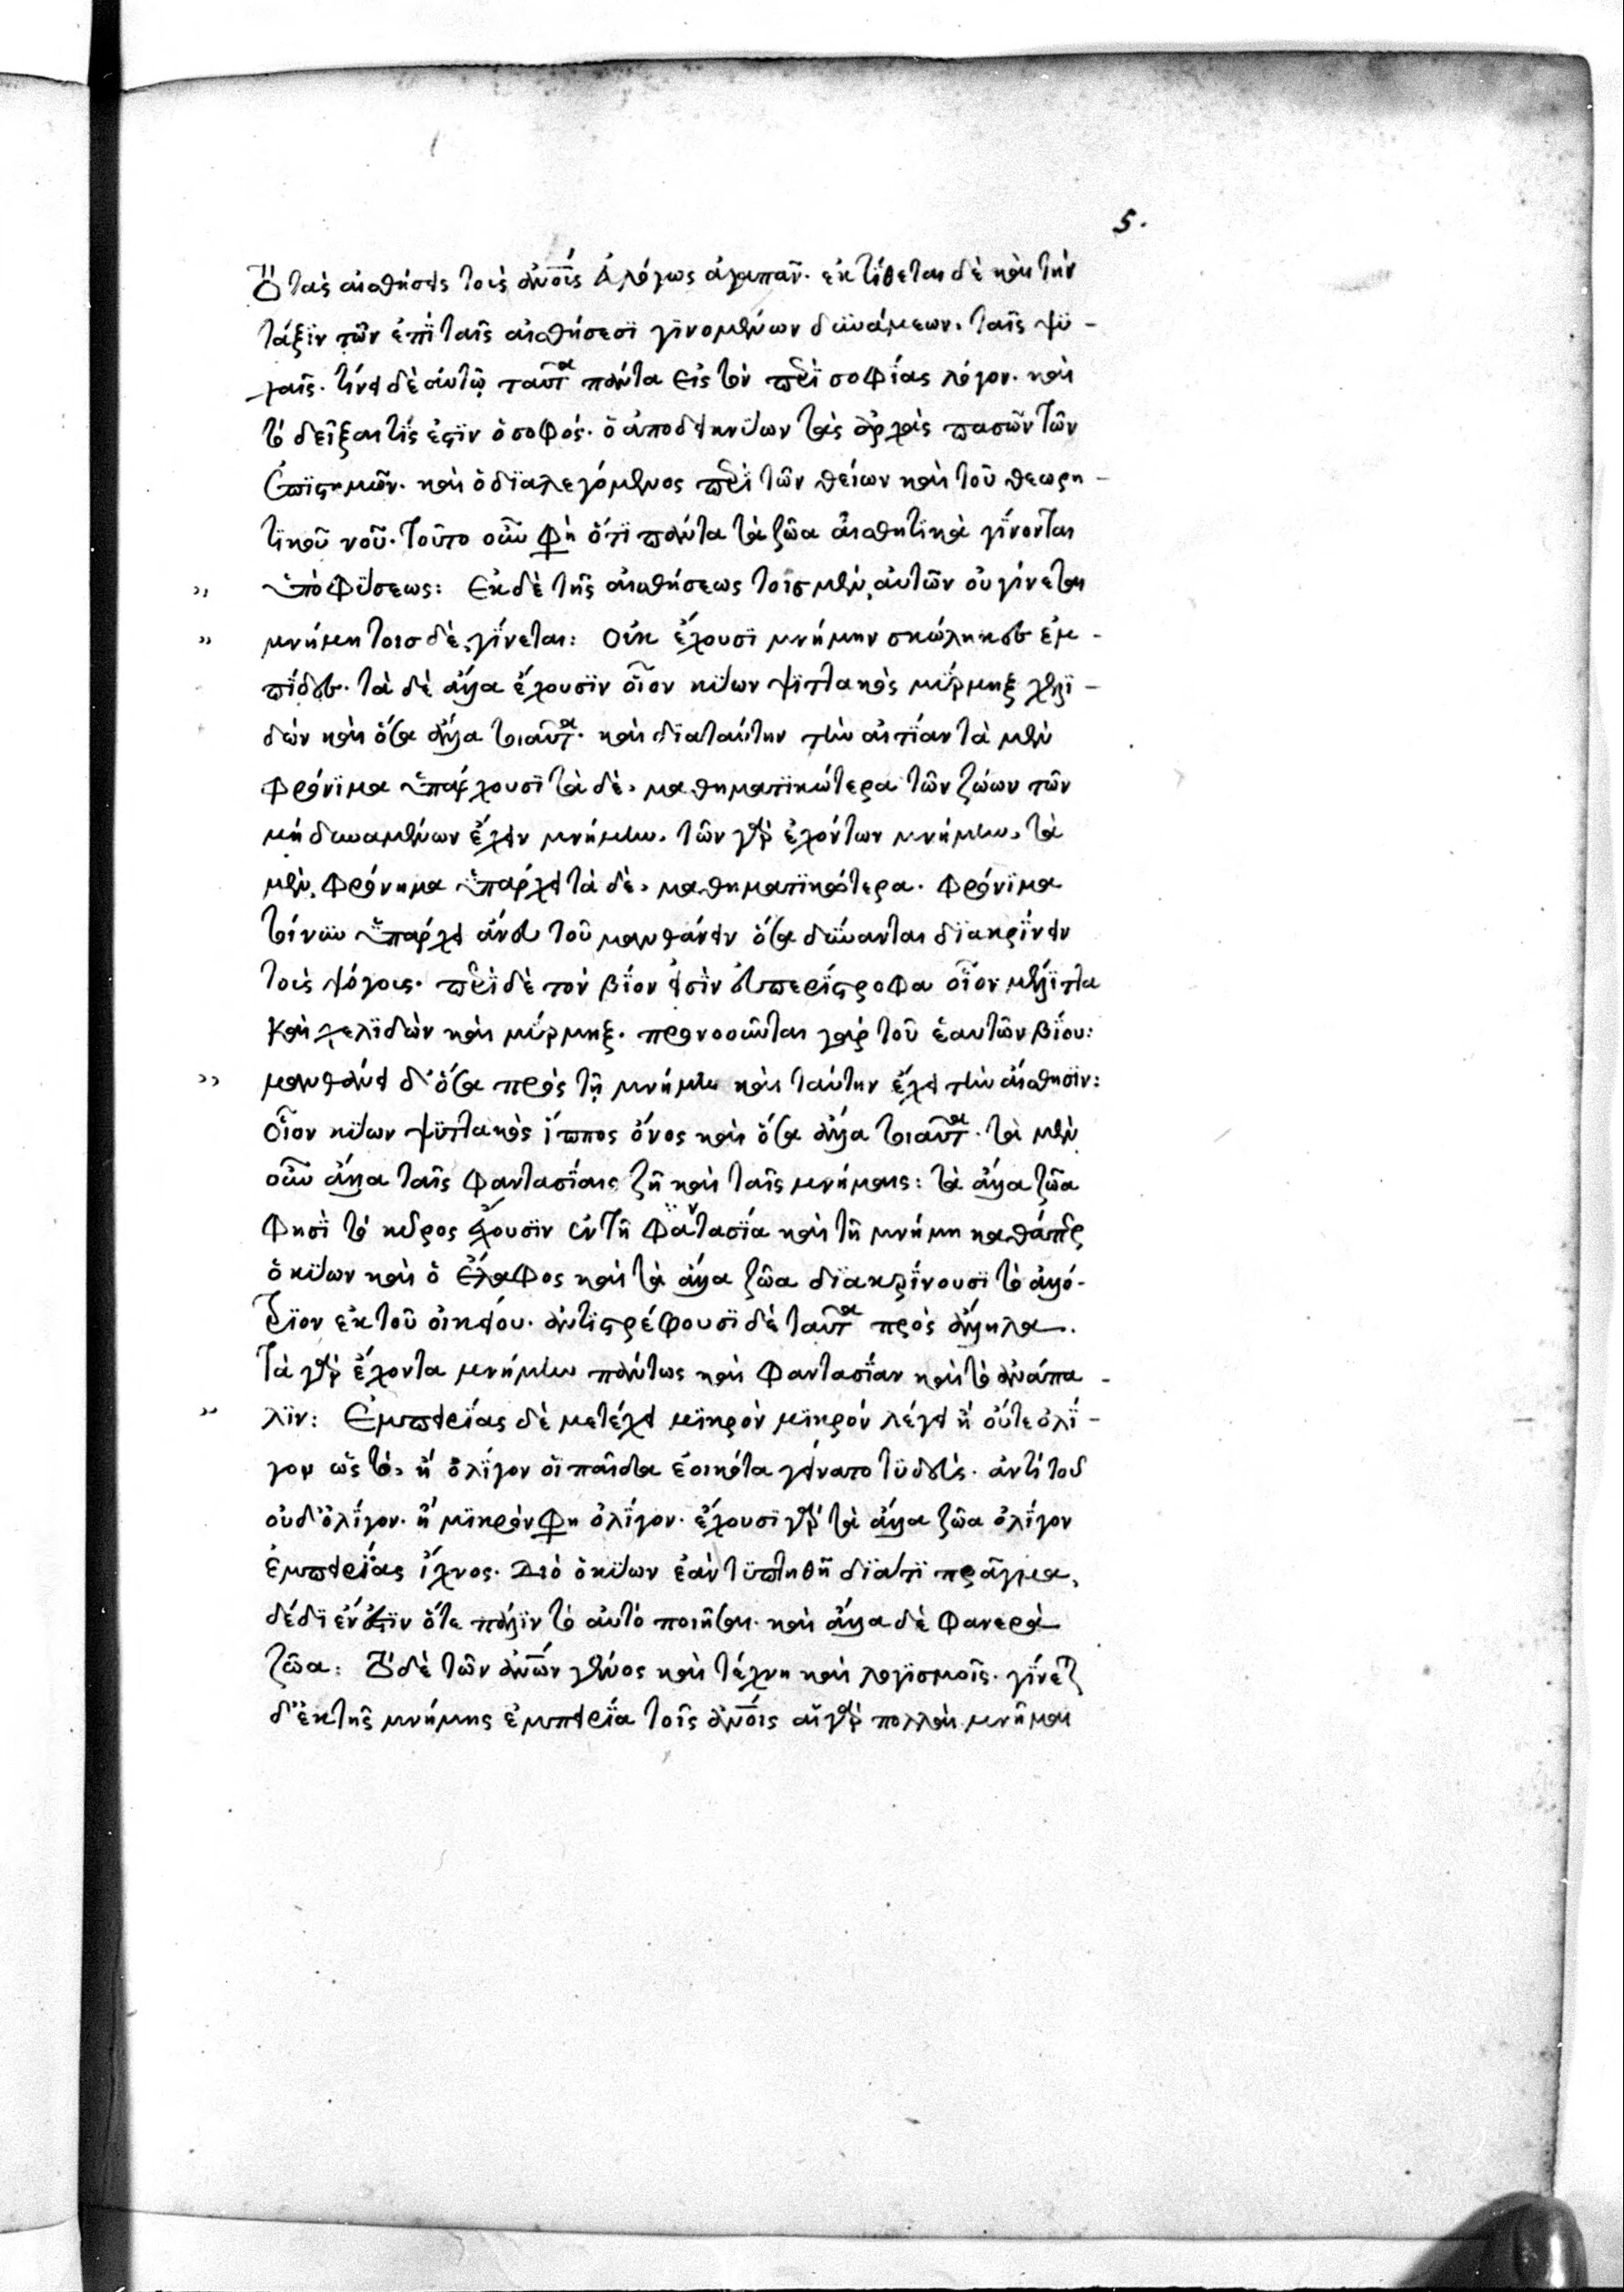 5.
τὸ τὰς αἰσθήσεις τοῖς ἀνοῖς ἀλόγως ἀγαπᾶν. ἐκτίθεται δὲ καὶ τὴν
τάξϊν τῶν ἐπὶ ταῖς αἰσθήσεσϊ γϊνομένων δϋνάμεων. ταῖς ψϋ-
χαῖς. τείνει δὲ αὐτῷ ταῦτα πάντα εἰς τὸν περὶ σοφίας λόγον. καὶ
τὸ δεῖξαι τίς ἐστϊν ὁ σοφός. ὁ ἀποδεικνύων τὰς ἀρχὰς πασῶν τῶν
ἐπϊστημῶν. καὶ ὁ δϊαλεγόμενος περὶ τῶν θείων καὶ τοῦ θεωρη-
τικοῦ νοῦ. τοῦτο οὖν φη ὅτϊ πάντα τὰ ζῶα αἰσθητϊκὰ γίνονται
ὑπὸ φύσεως: ἐκ δὲ τῆς αἰσθήσεως τοῖσ μὲν αὐτῶν οὐ γίνεται
μνήμη τοισ δὲ γίνεται: οὐκ ἔχουσϊ μνήμην σκώληκες ἐμ-
πίδες. τὰ δὲ ἄλλα ἔχουσϊν οἷον κύων ψϊττακὸς μύρμηξ χελϊ-
δὼν καὶ ὅσα ἄλλα τοιαῦτα. καὶ δϊαταύτην τὴν αἰτίαν τὰ μὲν
φρόνϊμα ὑπάρχουσϊ τὰ δὲ, μαθηματϊκώτερα τῶν ζώων τῶν
μὴ δυναμένων ἔχειν μνήμην. τῶν γὰρ ἐχόντων μνήμην, τὰ
μὲν, φρόνημα ὑπάρχει τὰ δὲ, μαθηματϊκώτερα. φρόνϊμα
τοίνυν ὑπάρχει ἄνευ τοῦ μανθάνειν ὅσα δύνανται δϊακρίνειν
τοὺς ψόφους. περὶ δὲ τὸν βίον εἰσὶν εὐπερίστροφα οἷον μέλϊττα
καὶ χελϊδὼν καὶ μύρμηξ. προνοοῦνται γὰρ τοῦ ἑαυτῶν βίου:
μανθάνει δ' ὅσα πρὸς τῇ μνήμῃ καὶ ταύτην ἔχει τὴν αἴσθησϊν:
οἷον κύων ψϋττακὸς ἵππος ὄνος καὶ ὅσα ἄλλα τοιαῦτα. τὰ μὲν
οὖν ἄλλα ταῖς φαντασίαις ζῆ καὶ ταῖς μνήμαις: τὰ ἄλλα ζῶα
φησὶ τὸ κῦρος ἔχουσϊν ἐν τῆ φαντασϊά καὶ τῆ μνήμη καθάπερ
ὁ κύων καὶ ὁ ἔλαφος καὶ τὰ ἄλλα ζῶα δϊακρίνουσϊ τὸ ἀλλό-
τρϊον ἐκ τοῦ οἰκείου. ἀντιστρέφουσϊ δὲ ταῦτα πρὸς ἄλληλα.
τὰ γὰρ ἔχοντα μνήμην πάντως καὶ φαντασίαν καὶ τὸ ἀνάπα-
λϊν: ἐμπειρίας δὲ μετέχει μϊκρὸν μϊκρόν λέγει ἢ οὔτε ὀλί-
γον ὡς τὸ, ἢ ὀλίγον οἷ παῖδα ἐοικότα γείνατο τϋδεύς. ἀντὶ τοῦ
οὐδ' ὀλίγον. ἢ μϊκρόν φη ὀλίγον. ἔχουσϊ γὰρ τὰ ἄλλα ζῶα ὀλίγον
ἐμπειρίας ἴχνος. διὸ ὁ κύων ἐὰν τϋπτηθῆ δϊάτϊ πρᾶγμα,
δέδϊεν ὅτε πάλϊν τὸ αὐτὸ ποιῆσαι. καὶ ἄλλα δὲ φανερὰ
ζῶα: τὸ δὲ τῶν ἀνῶν γένος καὶ τέχνη καὶ λογϊσμοῖς. γίνεται
δ' ἐκ τῆς μνήμης ἐμπειρία τοῖς ἀνοῖς αἱ γὰρ πολλαὶ μνῆμαι